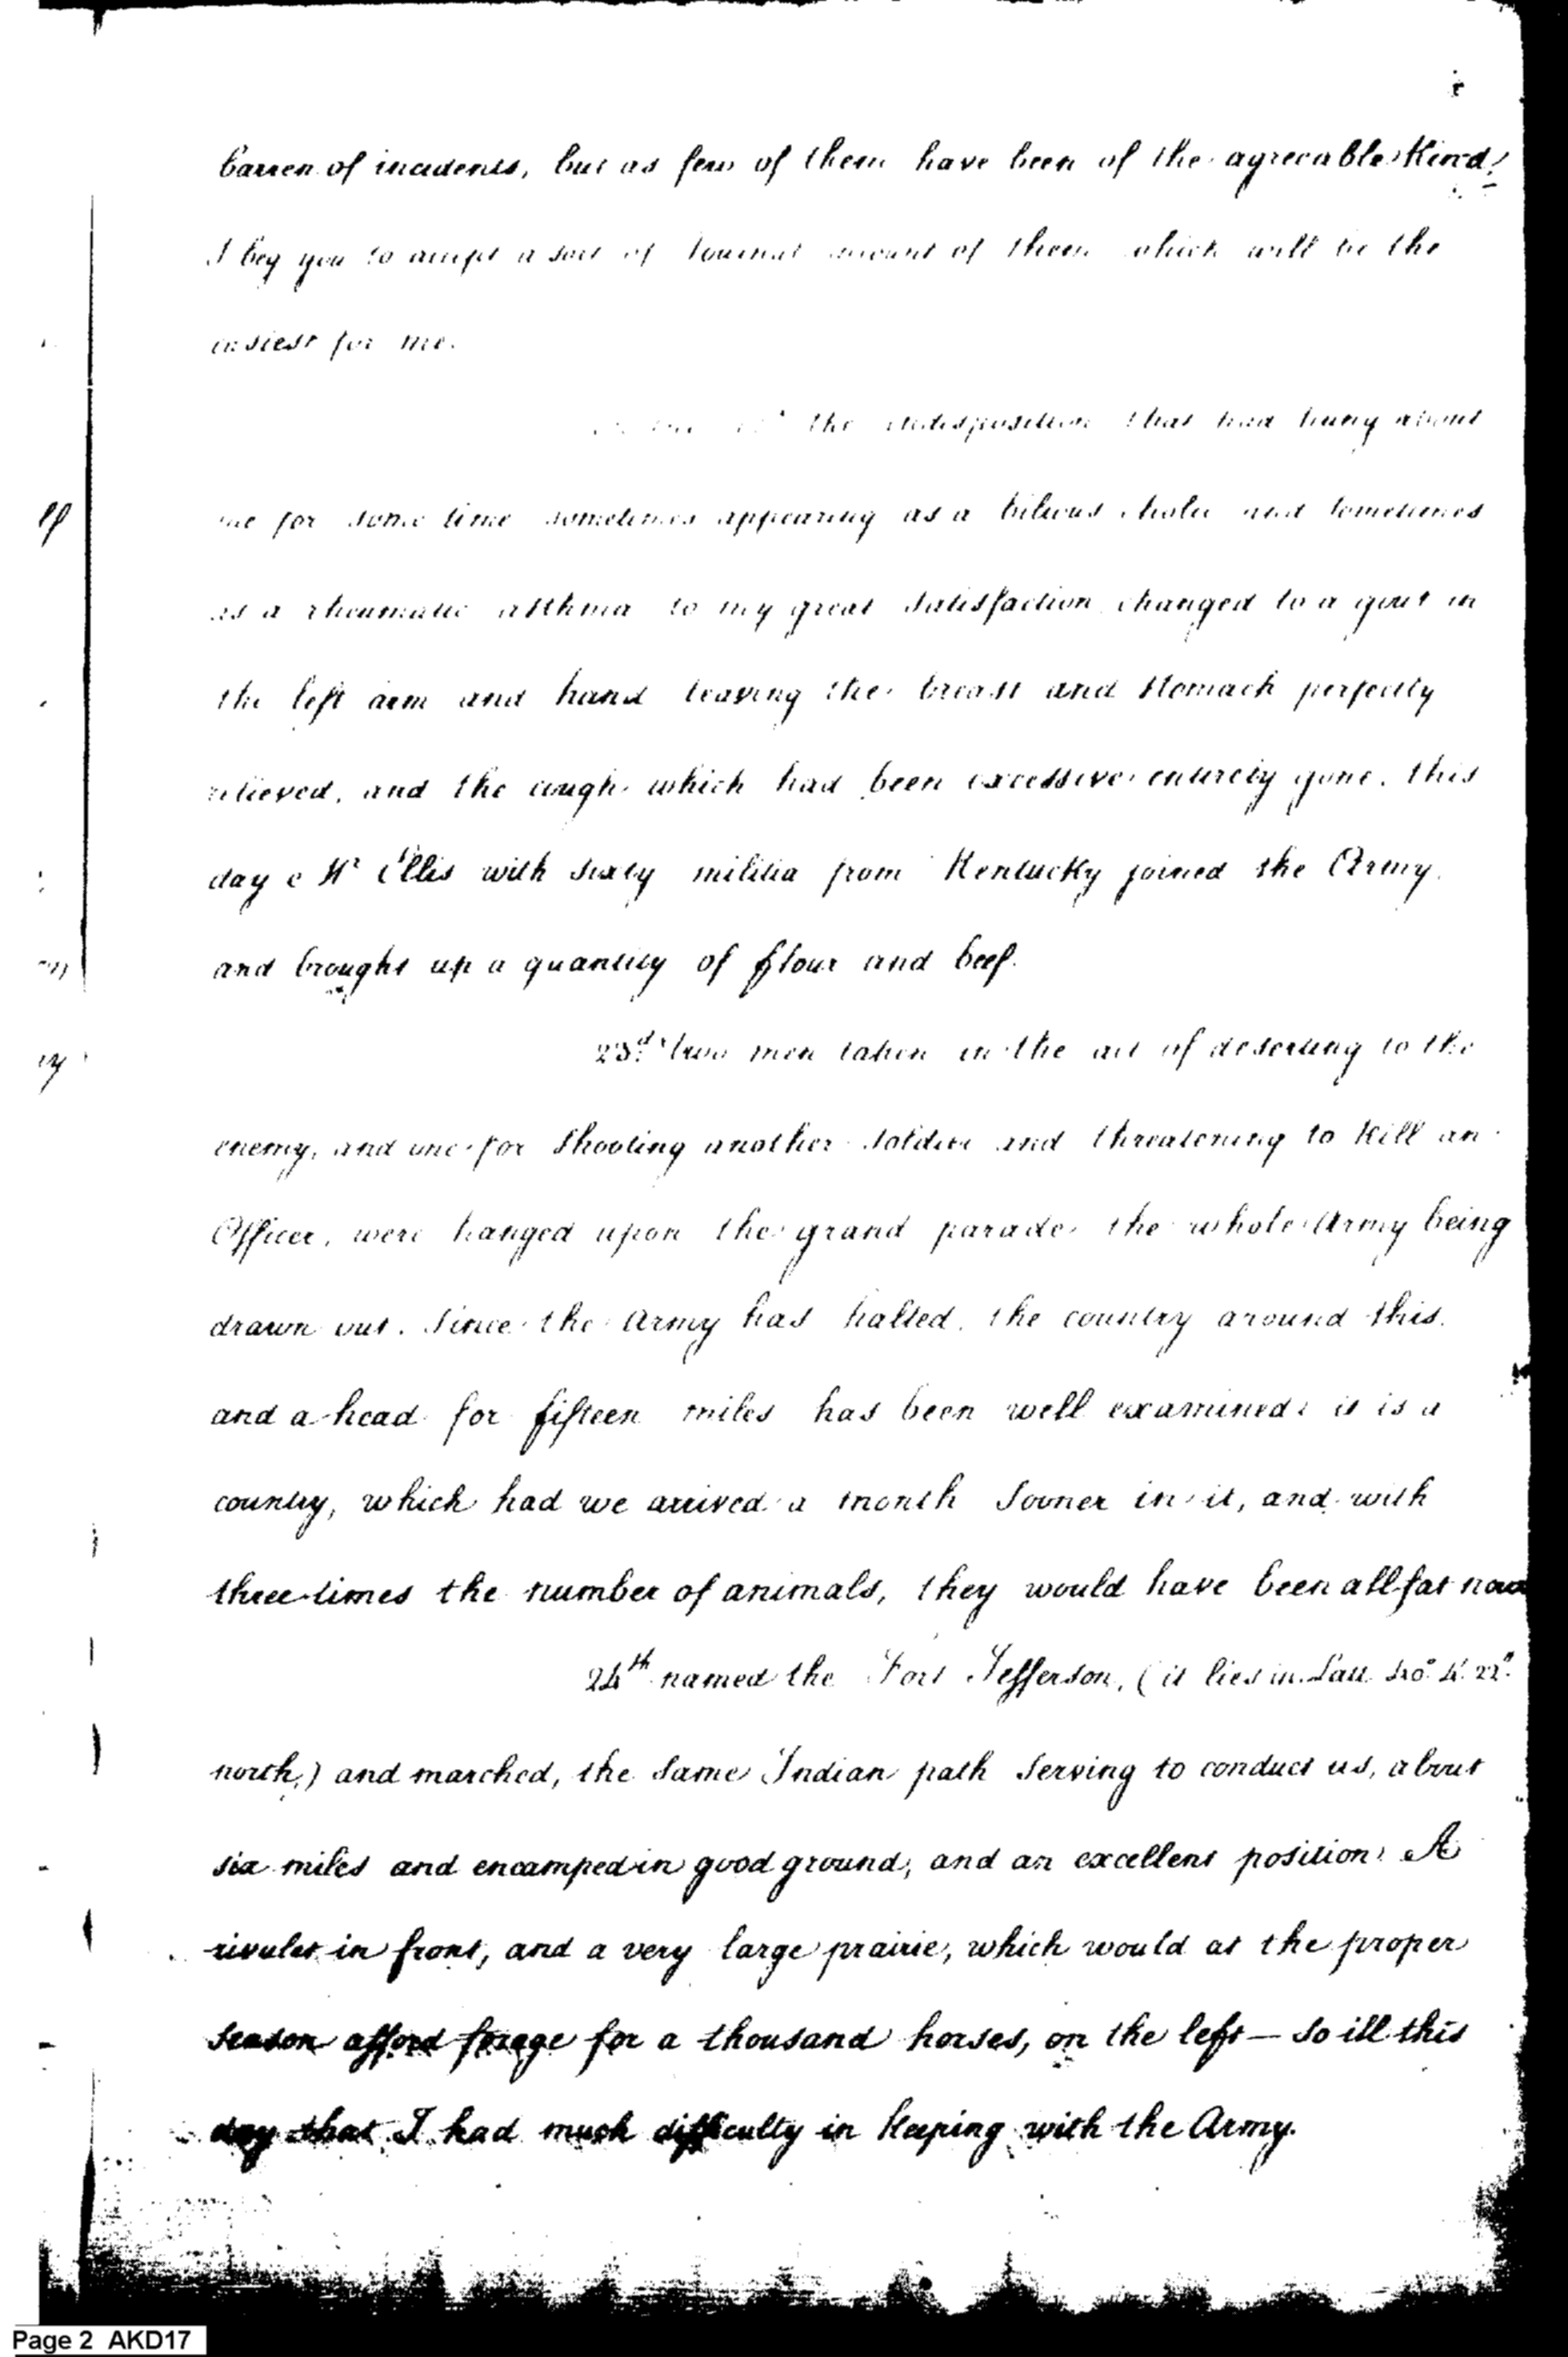 barren of incidents, but as few of them have been of the agreeable Kind,
I beg you to accept a sort of Journal account of them which will be the
easiest for me.
the indisposition that had hung about
me for some time sometimes appearing as a bilious cholic and sometimes
as a rheumatic asthma to my great satisfaction changed to a gout in
the left arm and hand leaving the breast and stomach perfectly
relieved, and the cough which had been excessive entirely gone. this
day Mr Ellis with sixty militia from Kentucky joined the Army.
and brought up a quantity of flour and beef.
23d. two men taken in the act of deserting to the
enemy, and one for Shooting another Soldier and threatening to Kill an
Officer, were hanged upon the grand parade the whole Army being
drawn out. Since the Army has halted, the country around this
and a head for fifteen miles has been well examined: it is a
country, which had we arrived a month Sooner in it, and with
three times the number of animals, they would have been all fat now
24th named the Fort Jefferson, (it lies in Latt. 40° 4'. 22"
north,) and marched, the Same Indian path Serving to conduct us, about
six miles and encamped in good ground, and an excellent position: A
rivulet in front, and a very large prairie, which would at the proper
Season afford forage for a thousand horses, on the left — So ill this
day that I had much difficulty in Keeping with the Army.
Page 2 AKD17